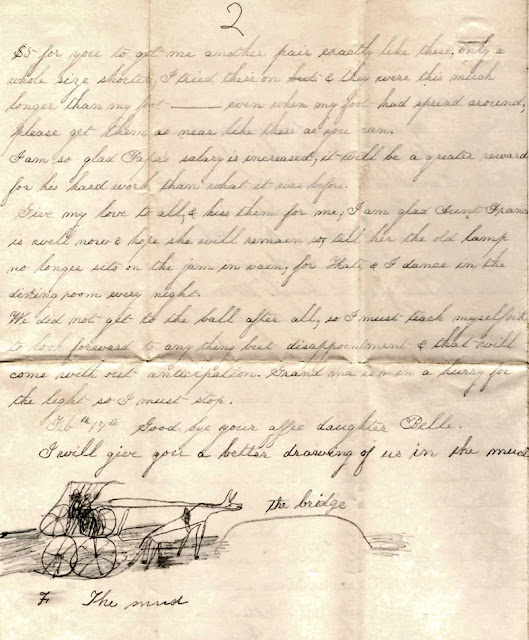 2
$5 for you to get me another pair exactly like these, only a
whole size shorter, I tried these on & they were this much
longer than my foot ——— even when my foot had spread around,
please get them as near like these as you can.
I am so glad Papa's salary is increased, it will be a greater reward
for his hard work than what it was before.
Give my love to all, & kiss them for me, I am glad Aunt Franc
is well now & hope she will remain so, tell her the old lamp
no longer sits on the jam in vain, for & I dance in the
dining room every night.
We did not get to the ball after all, so I must teach myself not
to look forward to any thing but disappointment & that will
come with out anticipation. Grand ma is in a hurry for
the light so I must stop.
Feb 17th Good bye your affec daughter Belle.
I will give you a better drawing of us in the mud
the bridge
The mud